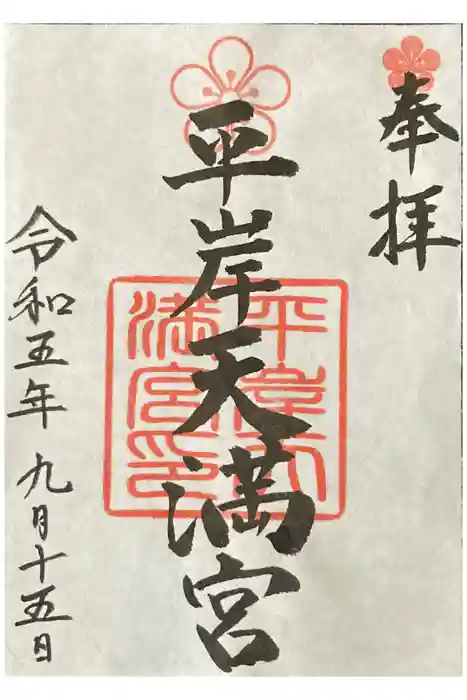 奉拝
平岸天満宮
平岸天
満宮印
令和五年 九月十五日